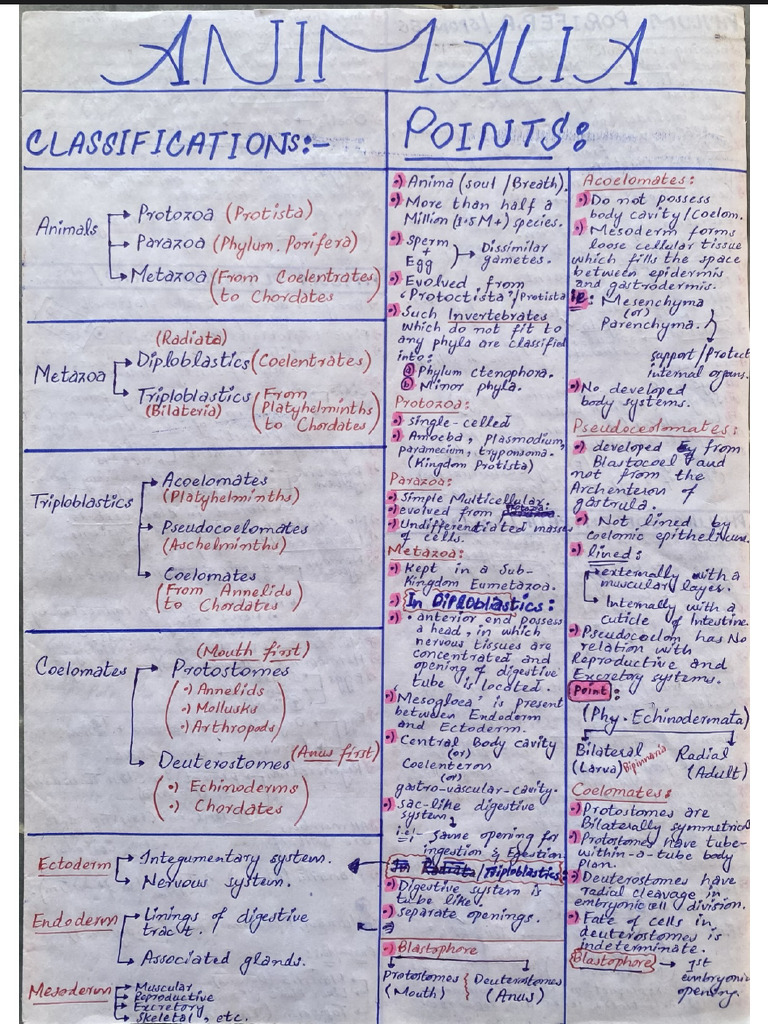 ANIMALIA
CLASSIFICATIONS:-
Animals
Protozoa (Protista)
Parazoa (Phylum. Porifera)
Metazoa (From Coelentrates
to Chordates)
(Radiata)
Metazoa
Diploblastics (Coelentrates)
Triploblastics (From
(Bilateria) Platyhelminths
to Chordates)
Triploblastics
Acoelomates
(Platyhelminths)
Pseudocoelomates
(Aschelminths)
Coelomates
(From Annelids
to Chordates)
(Mouth first)
Coelomates
Protostomes
•) Annelids
•) Mollusks
•) Arthropods
Deuterostomes (Anus first)
•) Echinoderms
•) Chordates
Ectoderm
Integumentary system.
Nervous system.
Endoderm
Linings of digestive
tract.
Associated glands.
Mesoderm
Muscular
Reproductive
Excretory
Skeletal, etc.
POINTS:
•) Anima (soul / Breath).
•) More than half a
Million (1.5 M+) species.
•) Sperm
+
Egg
Dissimilar
gametes.
•) Evolved from
"Protoctista"/Protista
•) Such Invertebrates
which do not fit to
any phyla are classified
into:
a Phylum ctenophora.
b Minor phyla.
Protozoa:
•) single-celled
•) Amoeba, plasmodium,
paramecium, tryponsoma.
(Kingdom Protista)
Parazoa:
•) Simple Multicellular.
•) evolved from
•) Undifferentiated masses
of cells.
Metazoa:
•) Kept in a Sub-
Kingdom Eumetazoa.
•) In Diploblastics:
•) • anterior end possess
a head, in which
nervous tissues are
concentrated and
opening of digestive
tube is located.
•) "Mesogloea" is present
between Endoderm
and Ectoderm.
•) Central Body cavity
(or)
Coelenteron
(or)
gastro-vascular-cavity.
•) sac-like digestive
system.
i.e:- same opening for
ingestion & Egestion.
In Radiata / Triploblastics:
•) Digestive system is
tube like.
•) separate openings.
•) Blastophore
Protostomes
(Mouth)
Deuterostomes
(Anus)
Acoelomates:
•) Do not possess
body cavity / Coelom.
•) Mesoderm forms
loose cellular tissue
which fills the space
between epidermis
and gastrodermis.
ie: Mesenchyma
(or)
Parenchyma.
support/Protect
internal organs.
•) No developed
body systems.
Pseudoceolomates:
•) developed from
Blastocoel and
not from the
Archenteron of
gastrula.
•) Not lined by
coelomic epithelium.
•) lined:
externally with a
muscular layer.
Internally with a
cuticle of Intestine.
•) Pseudocoelom has No
relation with
Reproductive and
Excretory systems.
Point:
(Phy. Echinodermata)
Bilateral
(Larva) Bipinnaria
Radial
(Adult)
Coelomates:
•) Protostomes are
Bilaterally symmetrical
•) Protostomes have tube-
within-a-tube body
plan.
•) Deuterostomes have
radial cleavage in
embryonic cell division.
•) Fate of cells in
deuterostomes is
indeterminate.
Blastophore → 1st
embryonic
opening.